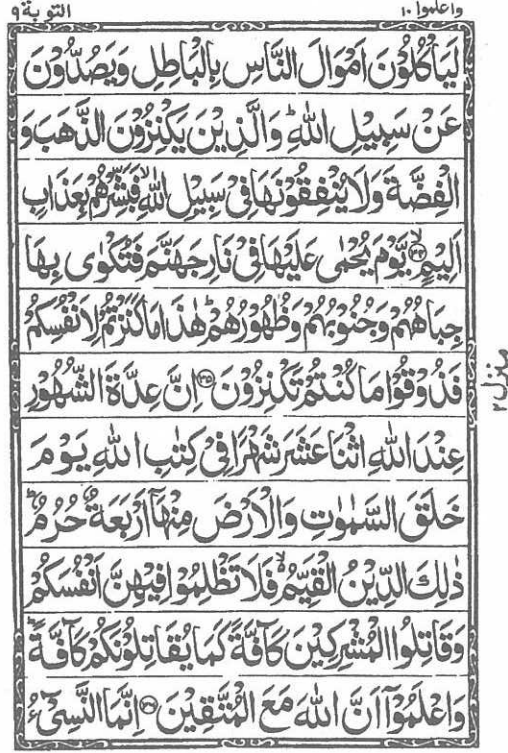 التوبة ٩
واعلموا ١٠
لَيَاْكُلُوْنَ اَمْوَالَ النَّاسِ بِالْبَاطِلِ وَيَصُدُّوْنَ
عَنْ سَبِيْلِ اللّٰهِ ؕ وَالَّذِيْنَ يَكْنِزُوْنَ الذَّهَبَ وَ
الْفِضَّةَ وَلَا يُنْفِقُوْنَهَا فِيْ سَبِيْلِ اللّٰهِ ۙ فَبَشِّرْهُمْ بِعَذَابٍ
اَلِيْمٍ ۙ﴿۳۴﴾ يَّوْمَ يُحْمٰى عَلَيْهَا فِيْ نَارِ جَهَنَّمَ فَتُكْوٰى بِهَا
جِبَاهُهُمْ وَجُنُوْبُهُمْ وَظُهُوْرُهُمْ ؕ هٰذَا مَا كَنَزْتُمْ لِاَنْفُسِكُمْ
فَذُوْقُوْا مَا كُنْتُمْ تَكْنِزُوْنَ ﴿۳۵﴾ اِنَّ عِدَّةَ الشُّهُوْرِ
عِنْدَ اللّٰهِ اثْنَا عَشَرَ شَهْرًا فِيْ كِتٰبِ اللّٰهِ يَوْمَ
خَلَقَ السَّمٰوٰتِ وَالْاَرْضَ مِنْهَاۤ اَرْبَعَةٌ حُرُمٌ ؕ
ذٰلِكَ الدِّيْنُ الْقَيِّمُ ۙ فَلَا تَظْلِمُوْا فِيْهِنَّ اَنْفُسَكُمْ
وَقَاتِلُوا الْمُشْرِكِيْنَ كَآفَّةً كَمَا يُقَاتِلُوْنَكُمْ كَآفَّةً ؕ
وَاعْلَمُوْۤا اَنَّ اللّٰهَ مَعَ الْمُتَّقِيْنَ ﴿۳۶﴾ اِنَّمَا النَّسِيْٓءُ
منزل ٢